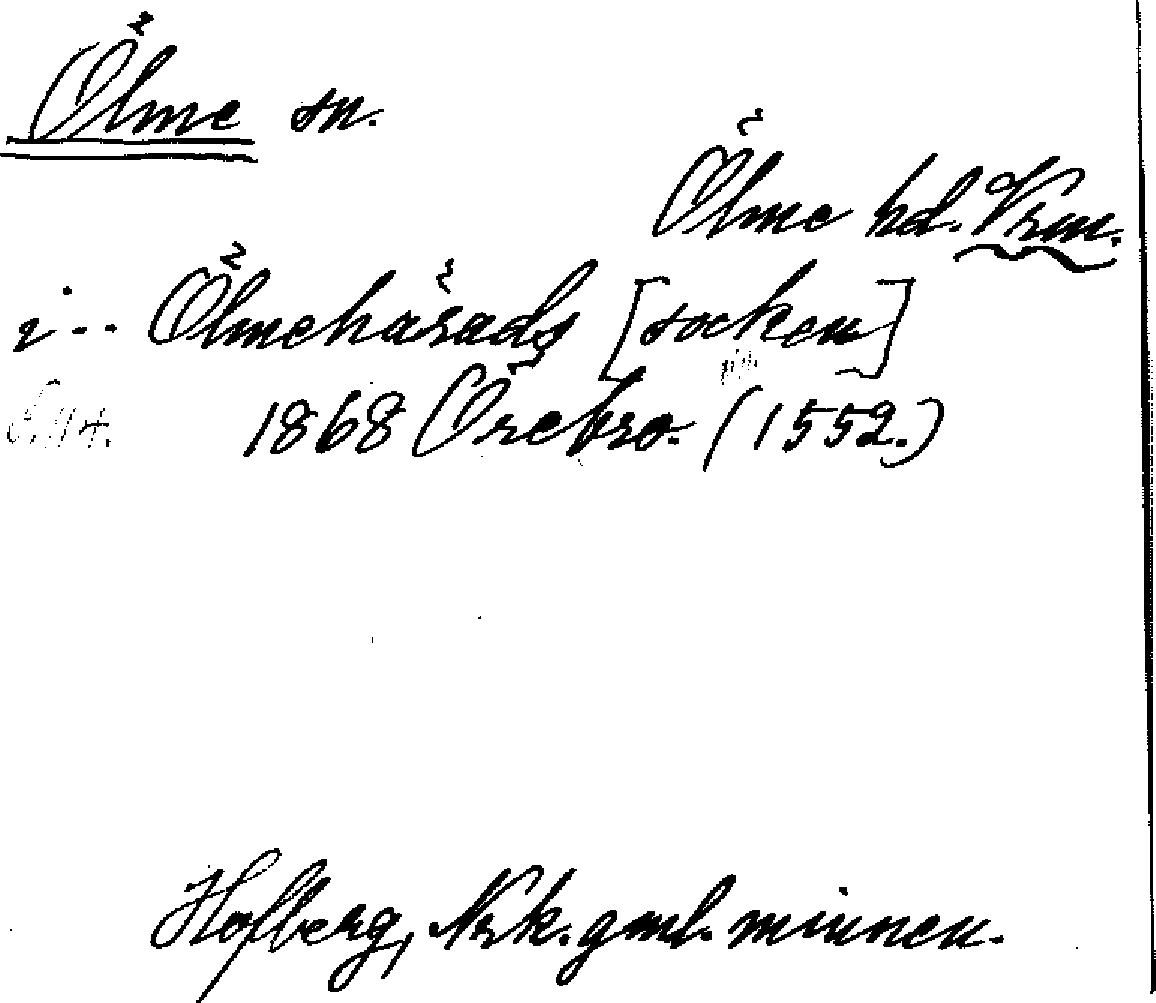 Ölme sn.
Ölme hd. Vrm.
i -- Ölmehärads [socken]
1868 Örebro. (1552.)
Hofberg, Nrk. gml. minnen.